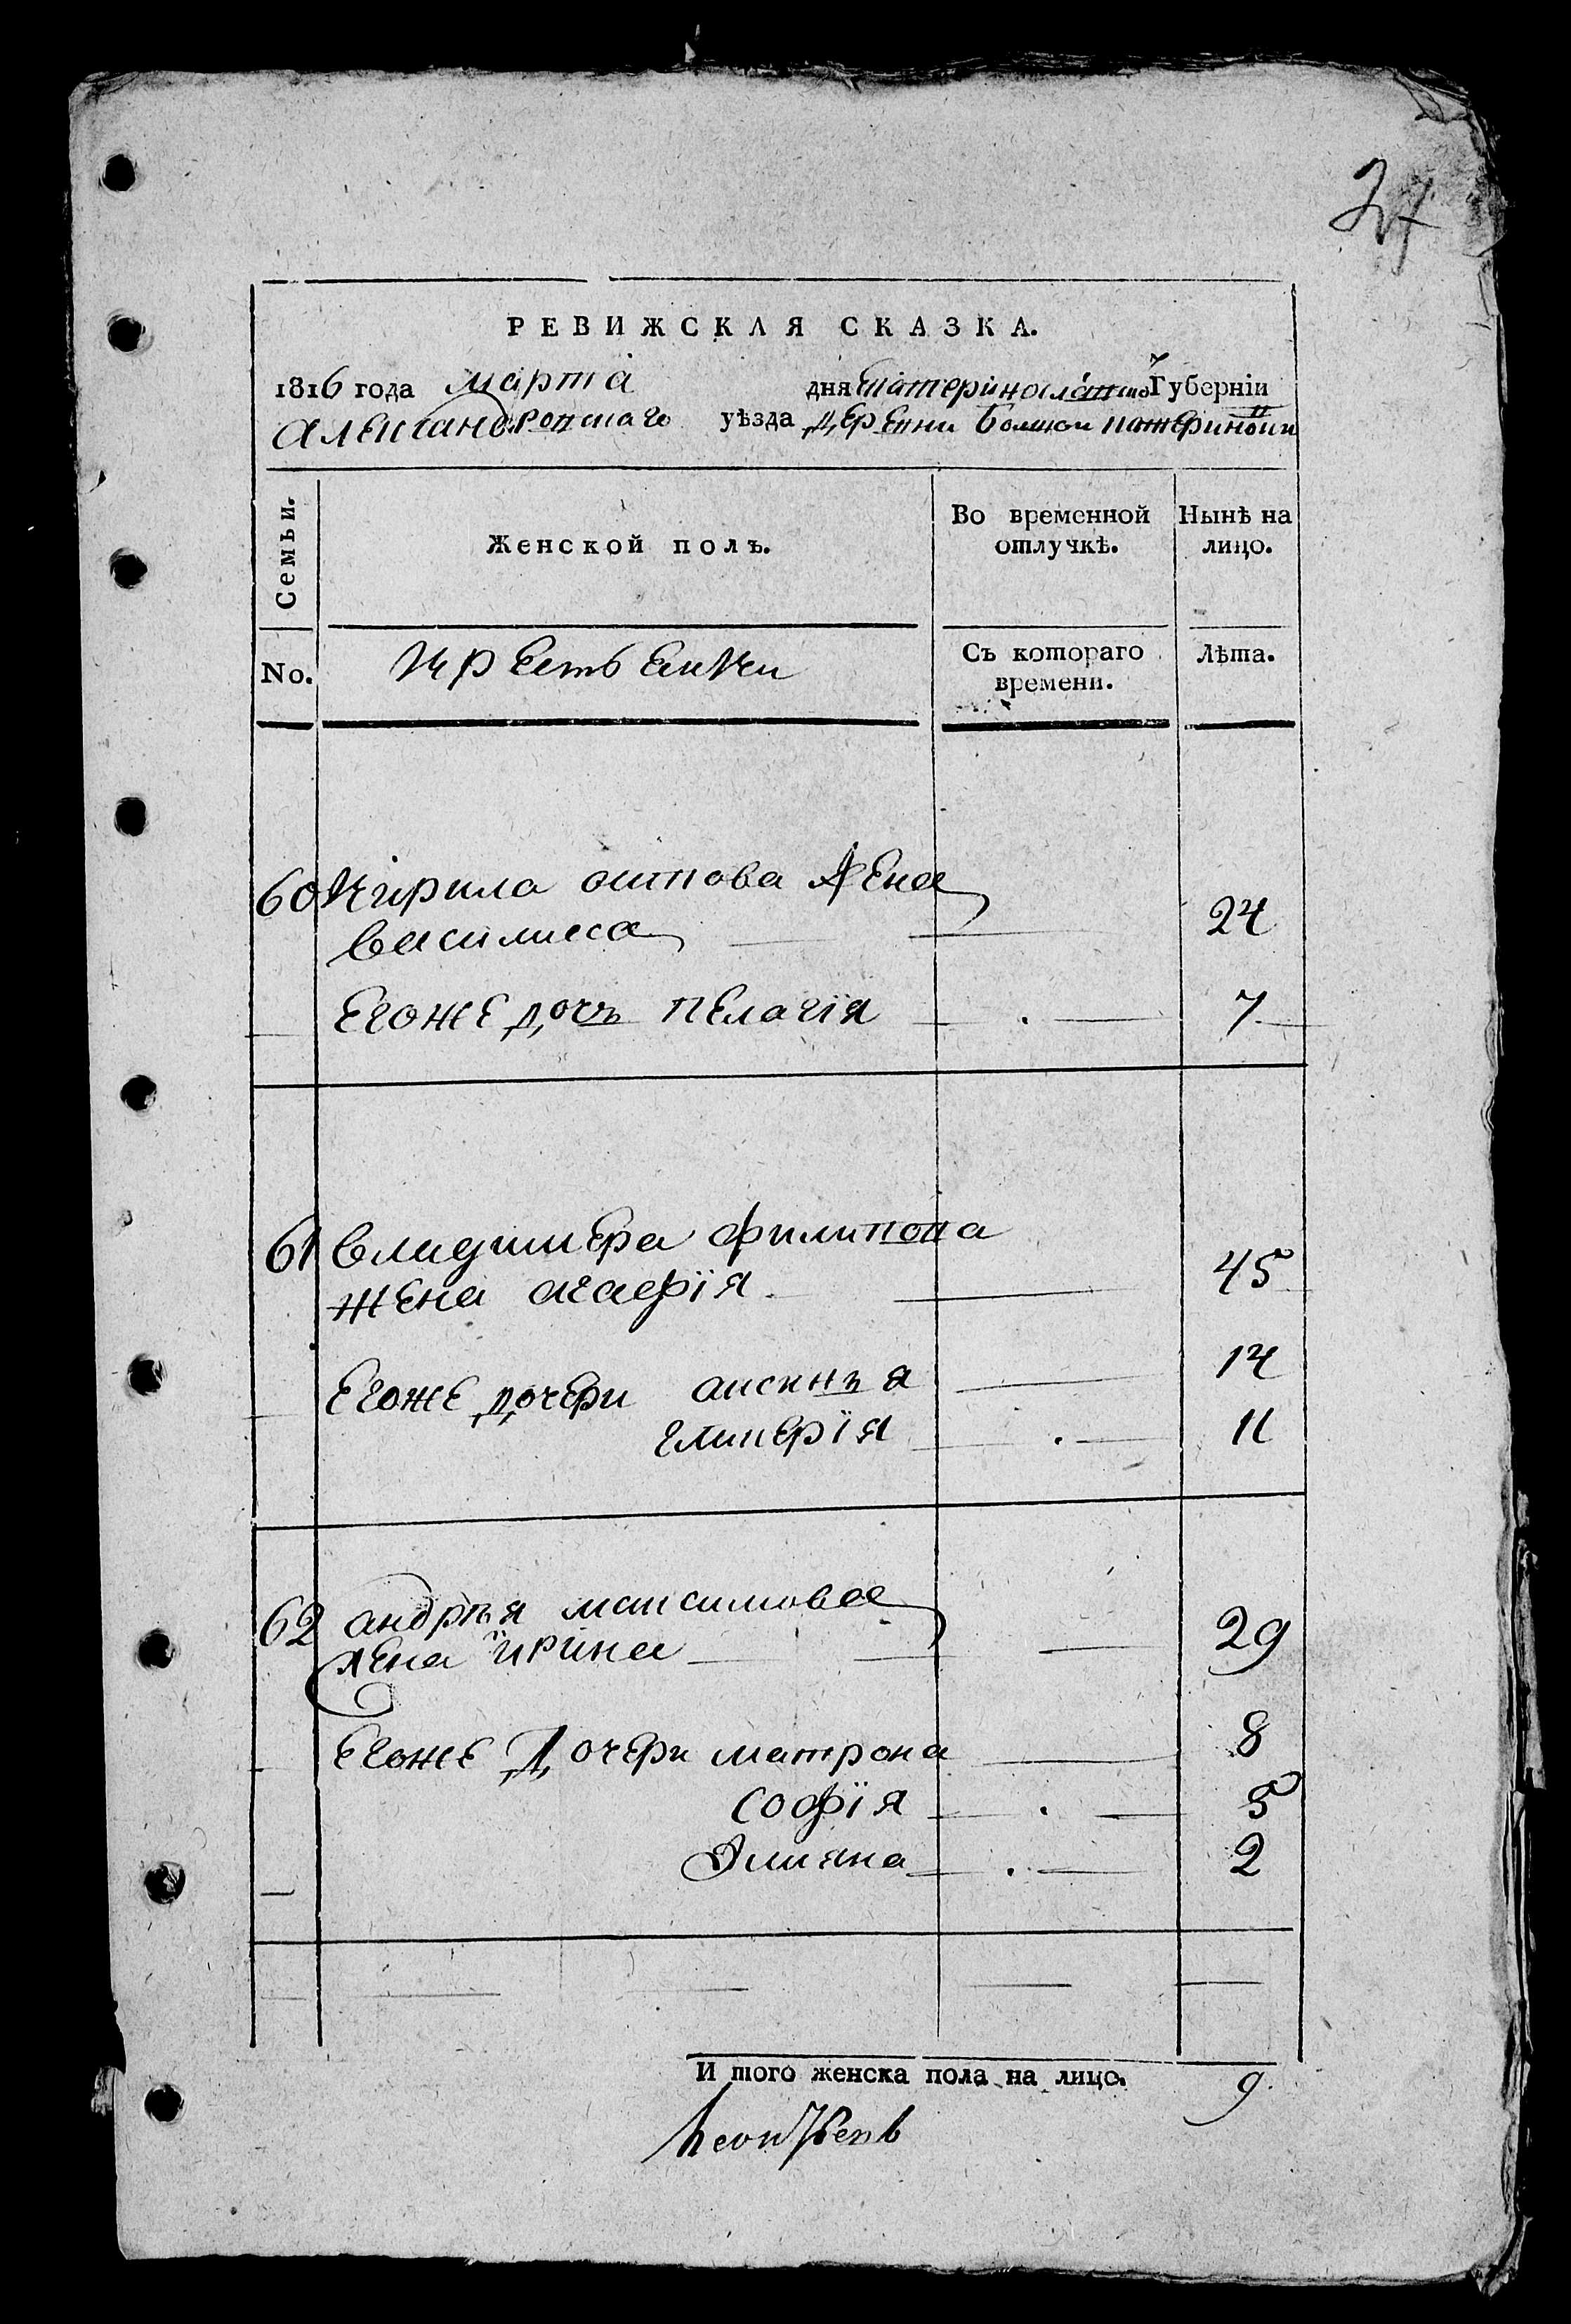 27
РЕВИЖСКАЯ СКАЗКА.
1816 года марта дня Екатеринославской Губерніи
Александровскаго уѣзда деревни Болшой Катериновки
Семьи. Женской полъ. Во временной отлучкѣ. Нынѣ на лицо.
No. крестьянки Съ котораго времени. Лѣта.
60 Кирила осипова жена
василиса 24
Егоже дочь пелагїя 7
61 владимера филипова
жена агафїя 45
Егоже дочери аксинья 14
гликерїя 11
62 андрѣя максимова
жена ирина 29
Егоже Дочери матрона 8
софїя 5
2
И того женска пола на лицо. 9